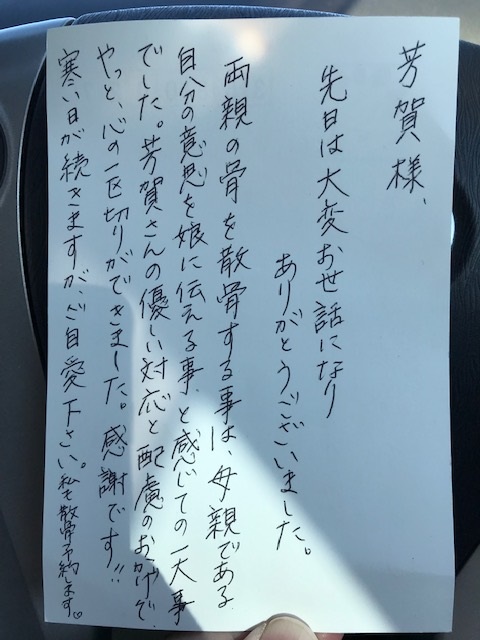 芳賀様、
先日は大変お世話になり
ありがとうございました。
両親の骨を散骨する事は、母親である
自分の意思を娘に伝える事、と感じての一大事
でした。芳賀さんの優しい対応と配慮のおかげで
やっと、心の一区切りができました。感謝です!!
寒い日が続きますがご自愛下さい。私も散骨予約します。♡